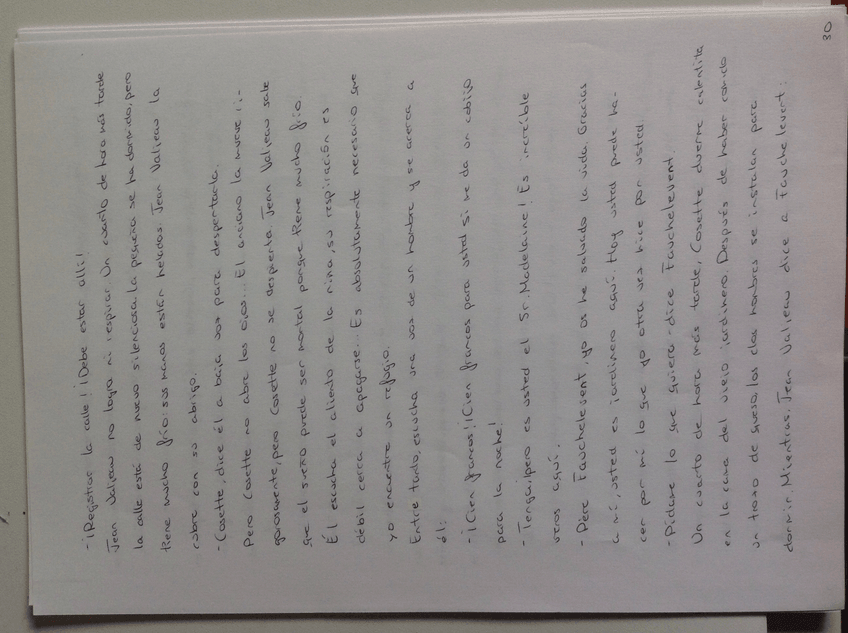 - ¡Registrar la calle! ¡Debe estar allí!
Jean Valjean no logra ni respirar. Un cuarto de hora más tarde
la calle está de nuevo silenciosa. La pequeña se ha dormido, pero
tiene mucho frío: sus manos están heladas. Jean Valjean la
cubre con su abrigo.
- Cosette, dice él a baja voz para despertarla.
Pero Cosette no abre los ojos... El anciano la mueve vi-
gorosamente, pero Cosette no se despierta. Jean Valjean sabe
que el sueño puede ser mortal porque tiene mucho frío.
Él escucha el aliento de la niña, su respiración es
débil cerca a apagarse... Es absolutamente necesario que
yo encuentre un refugio.
Entre tanto, escucha una voz de un hombre y se acerca a
él:
- ¡Cien francos! ¡Cien francos para usted si me da un cobijo
para la noche!
- Tenga, ¡pero es usted el Sr. Madelaine! Es increíble
veros aquí.
- Père Fauchelevent, yo os he salvado la vida. Gracias
a mí, usted es jardinero aquí. Hoy usted puede ha-
cer por mí lo que yo otra vez hice por usted.
- Pídame lo que quiera - dice Fauchelevent.
Un cuarto de hora más tarde, Cosette duerme calentita
en la cama del viejo jardinero. Después de haber comido
un trozo de queso, los dos hombres se instalan para
dormir. Mientras, Jean Valjean dice a Fauchelevent:
30